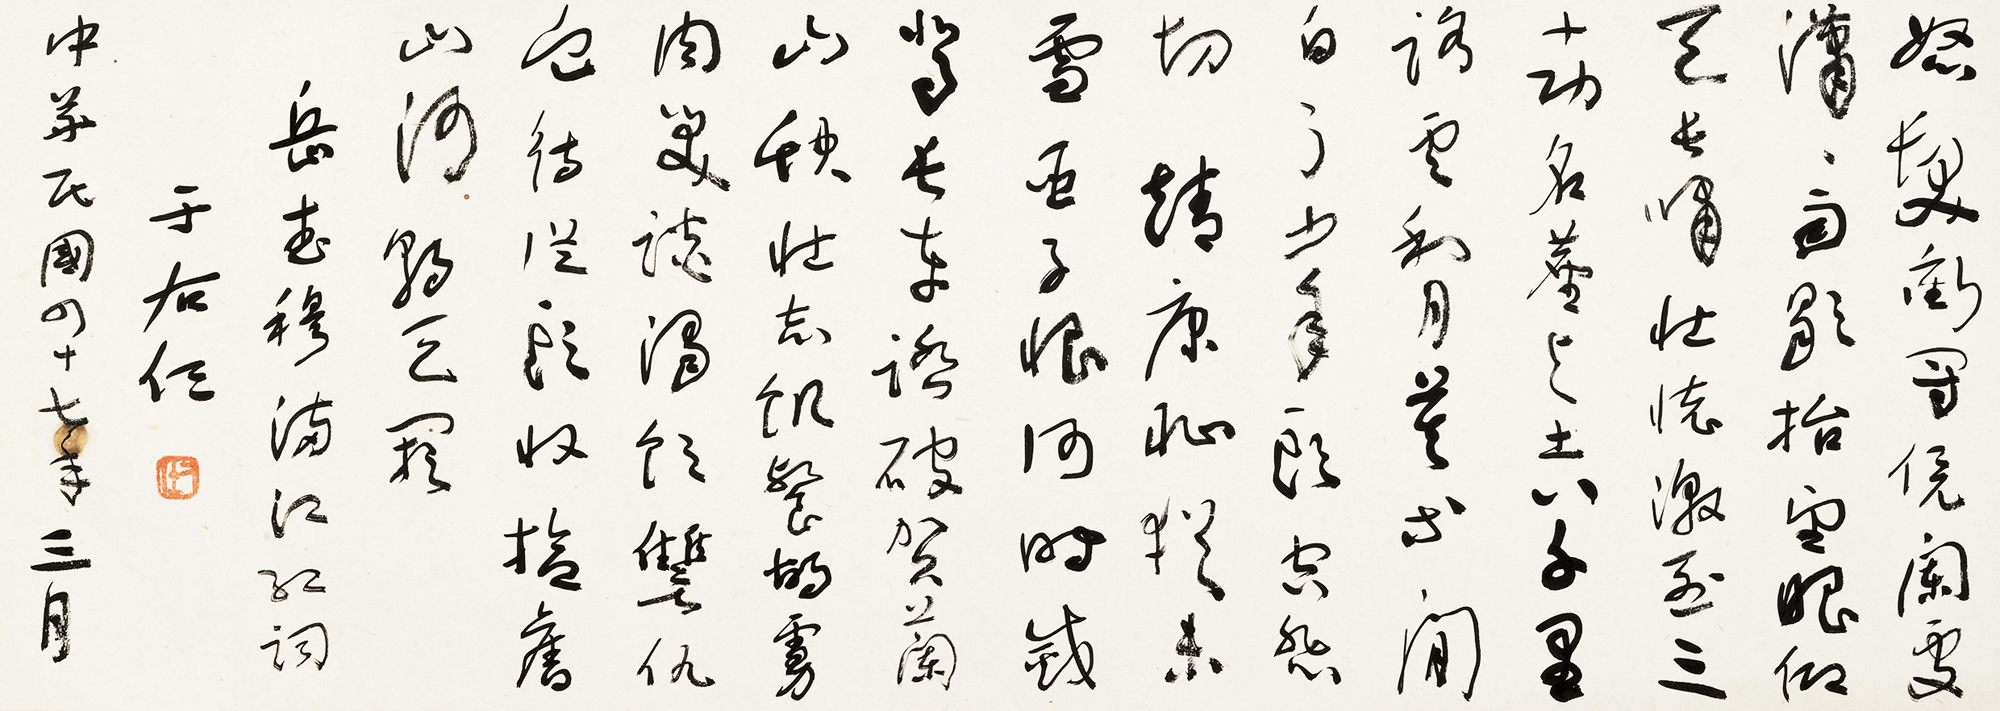 怒髮衝冠凭闌處
瀟瀟雨歇抬望眼仰
天長嘯壯懷激烈三
十功名塵與土八千里
路雲和月莫等閒
白了少年頭空悲
切 靖康恥猶未
雪臣子恨何時滅
駕長車踏破賀蘭
山缺壯志飢餐胡虜
肉笑談渴飲讐仇
血待從頭收拾舊
山河朝天闕
岳武穆滿江紅詞
于右任
中華民國四十七年三月